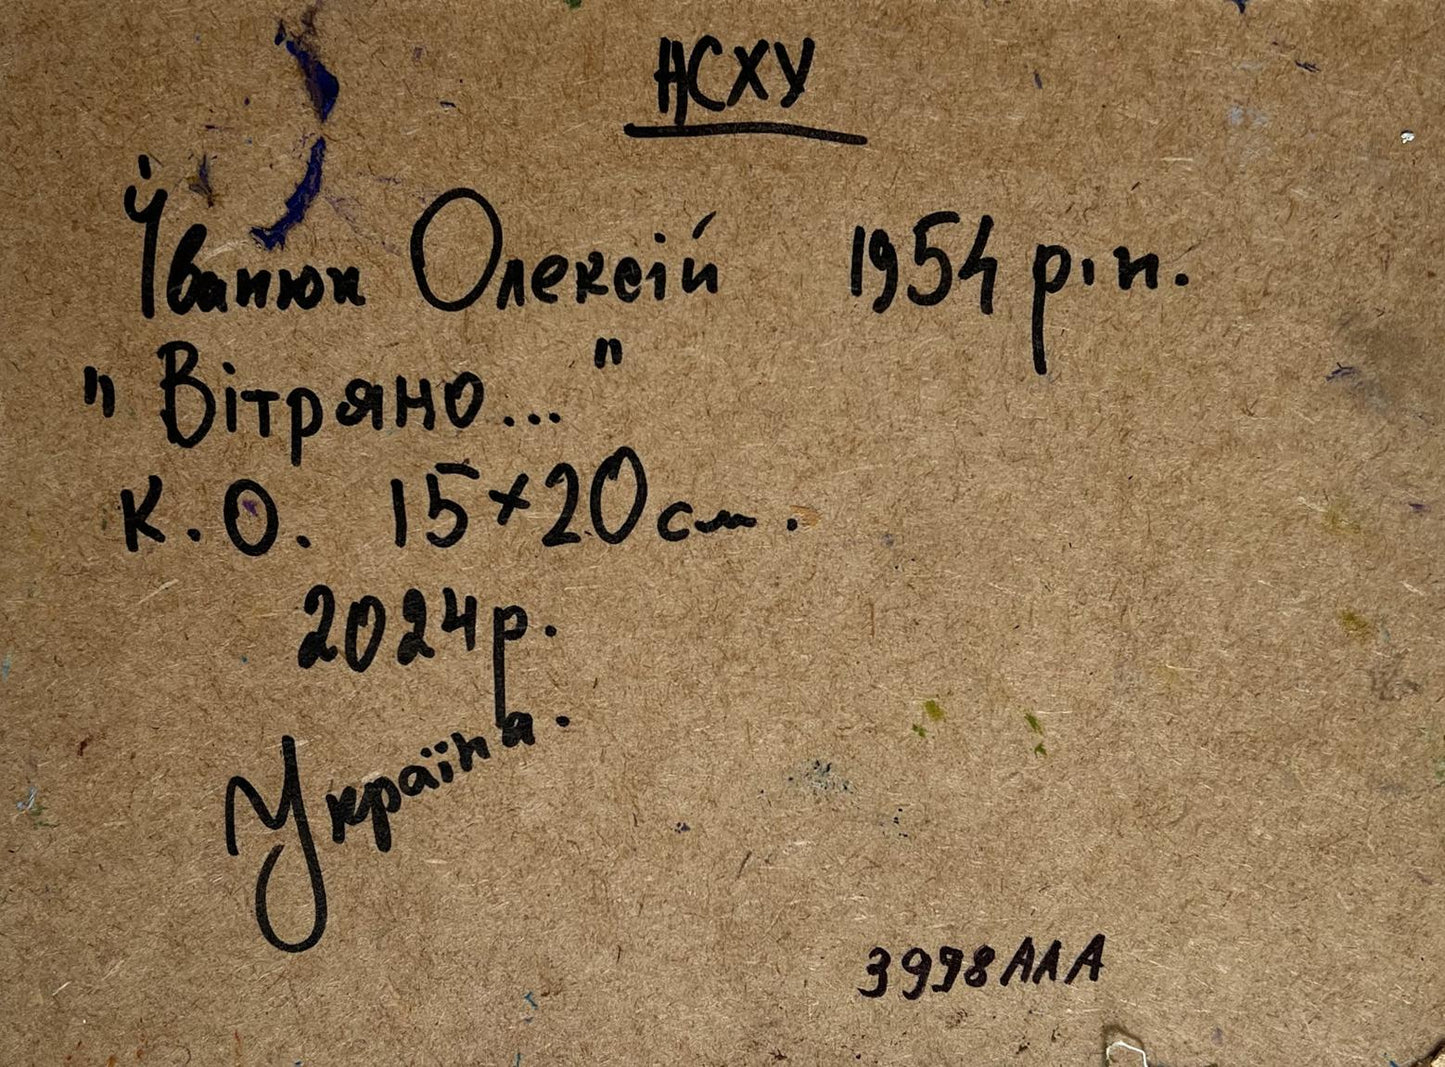 НСХУ
Іванюк Олексій 1954 р.н.
"Вітряно..."
К.О. 15×20 см.
2024 р.
Україна.
3998АЛА